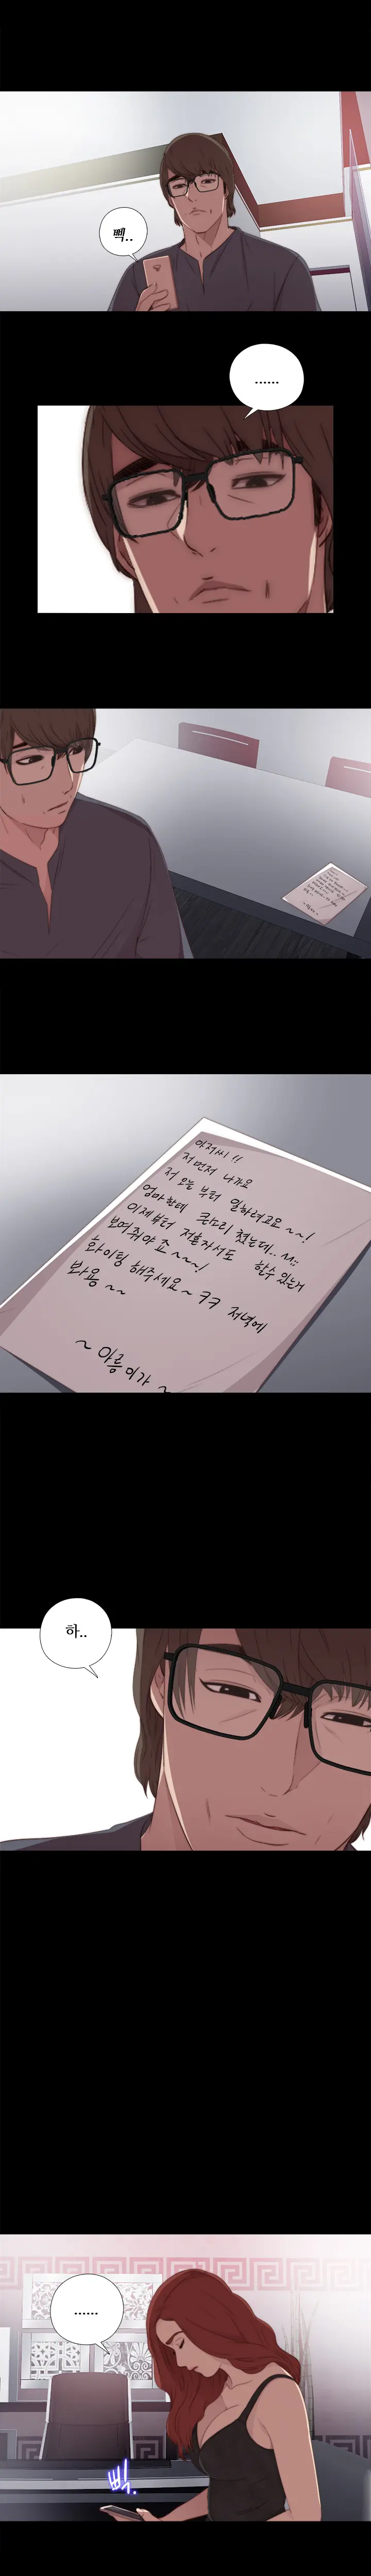 삑..
......
아저씨 !!
저 먼저 나가요
저 오늘 부터 일하려고요~~!
엄마한테 큰소리 쳤는데.. ^^;;
이제부터 저혼자서도 할수 있는거
보여줘야 죠~~~!
화이팅 해주세요~ ㅋㅋ 저녁에
봐용~~
~ 아름이가 ~
하..
......
삑.